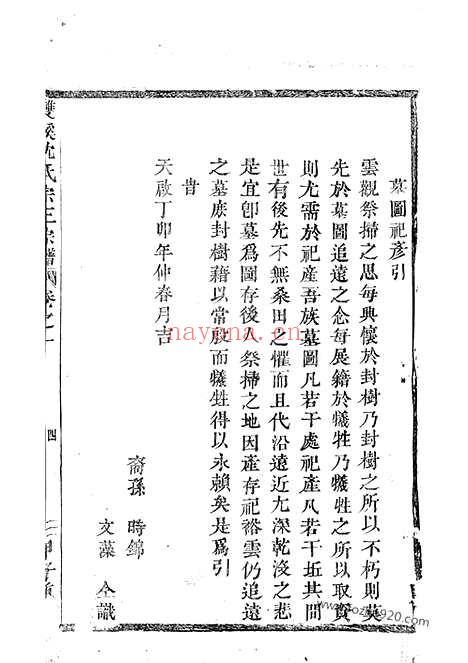 墓圖祀彥引
雲觀祭掃之思每興懷於封樹乃封樹之所以不朽則莫
先於墓圖追遠之念每展籍於犧牲乃犧牲之所以取資
則尤需於祀產吾族墓圖凡若干處祀產凡若干坵其間
世有後先不無桑田之懼而且代沿遠近尤深乾沒之悲
是宜卽墓爲圖存後人祭掃之地因產存祀裕雲仍追遠
之墓庶封樹藉以常殷而犧牲得以永賴矣是爲引
旹
天啟丁卯年仲春月吉
裔孫 時錦
文藻 仝識
雙溪沈氏宗三宗譜 卷之一
四
nayona.cn